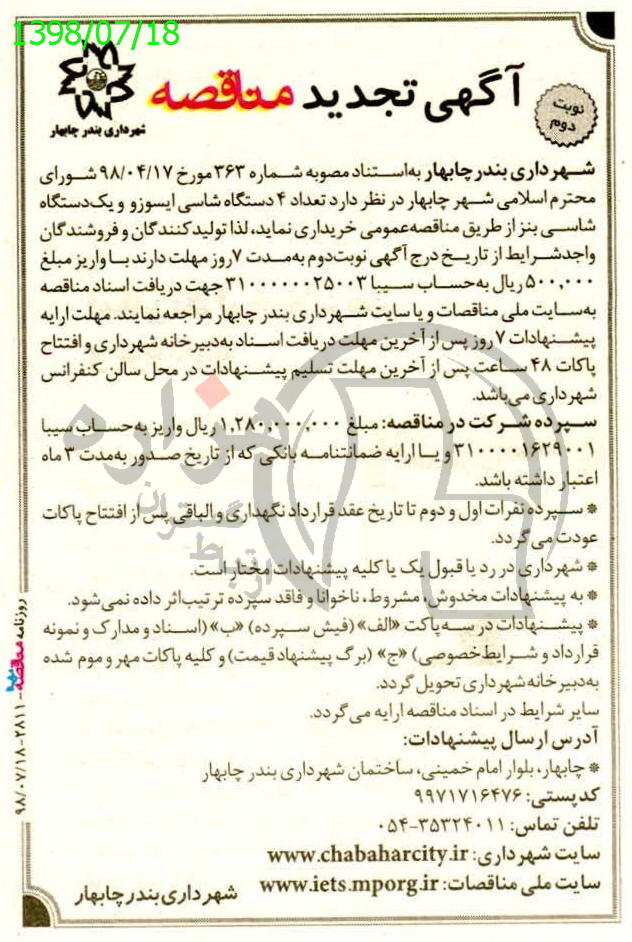 1398/07/18
آگهی تجدید مناقصه
نوبت
دوم
شهرداری بندر چابهار
شهرداری بندر چابهار به‌استناد مصوبه شماره ۳۶۳ مورخ ۹۸/۰۴/۱۷ شورای
محترم اسلامی شهر چابهار در نظر دارد تعداد ۴ دستگاه شاسی ایسوزو و یک‌دستگاه
شاسی بنز از طریق مناقصه‌عمومی خریداری نماید، لذا تولیدکنندگان و فروشندگان
واجدشرایط از تاریخ درج آگهی نوبت‌دوم به‌مدت ۷روز مهلت دارند با واریز مبلغ
۵۰۰,۰۰۰ ریال به‌حساب سیبا ۳۱۰۰۰۰۰۰۲۵۰۰۳ جهت دریافت اسناد مناقصه
به‌سایت ملی مناقصات و یا سایت شهرداری بندر چابهار مراجعه نمایند. مهلت ارایه
پیشنهادات ۷ روز پس از آخرین مهلت دریافت اسناد به‌دبیرخانه شهرداری و افتتاح
پاکات ۴۸ ساعت پس از آخرین مهلت تسلیم پیشنهادات در محل سالن کنفرانس
شهرداری می‌باشد.
سپرده شرکت در مناقصه: مبلغ ۱,۲۸۰,۰۰۰,۰۰۰ ریال واریز به‌حساب سیبا
۳۱۰۰۰۰۱۶۲۹۰۰۱ و یا ارایه ضمانتنامه بانکی که از تاریخ صدور به‌مدت ۳ ماه
اعتبار داشته باشد.
* سپرده نفرات اول و دوم تا تاریخ عقد قرارداد نگهداری و الباقی پس از افتتاح پاکات
عودت می‌گردد.
* شهرداری در رد یا قبول یک یا کلیه پیشنهادات مختار است.
* به پیشنهادات مخدوش، مشروط، ناخوانا و فاقد سپرده ترتیب‌اثر داده نمی‌شود.
* پیشنهادات در سه پاکت «الف» (فیش سپرده) «ب» (اسناد و مدارک و نمونه
قرارداد و شرایط خصوصی) «ج» (برگ پیشنهاد قیمت) و کلیه پاکات مهر و موم شده
به‌دبیرخانه شهرداری تحویل گردد.
سایر شرایط در اسناد مناقصه ارایه می‌گردد.
آدرس ارسال پیشنهادات:
* چابهار، بلوار امام خمینی، ساختمان شهرداری بندر چابهار
کدپستی: ۹۹۷۱۷۱۶۴۷۶
تلفن تماس: ۳۵۳۲۴۰۱۱-۰۵۴
سایت شهرداری: www.chabaharcity.ir
سایت ملی مناقصات: www.iets.mporg.ir
شهرداری بندر چابهار
روزنامه مناقصه - ۲۸۱۱ - ۹۸/۰۷/۱۸
هزاره
گستران
ارتباط